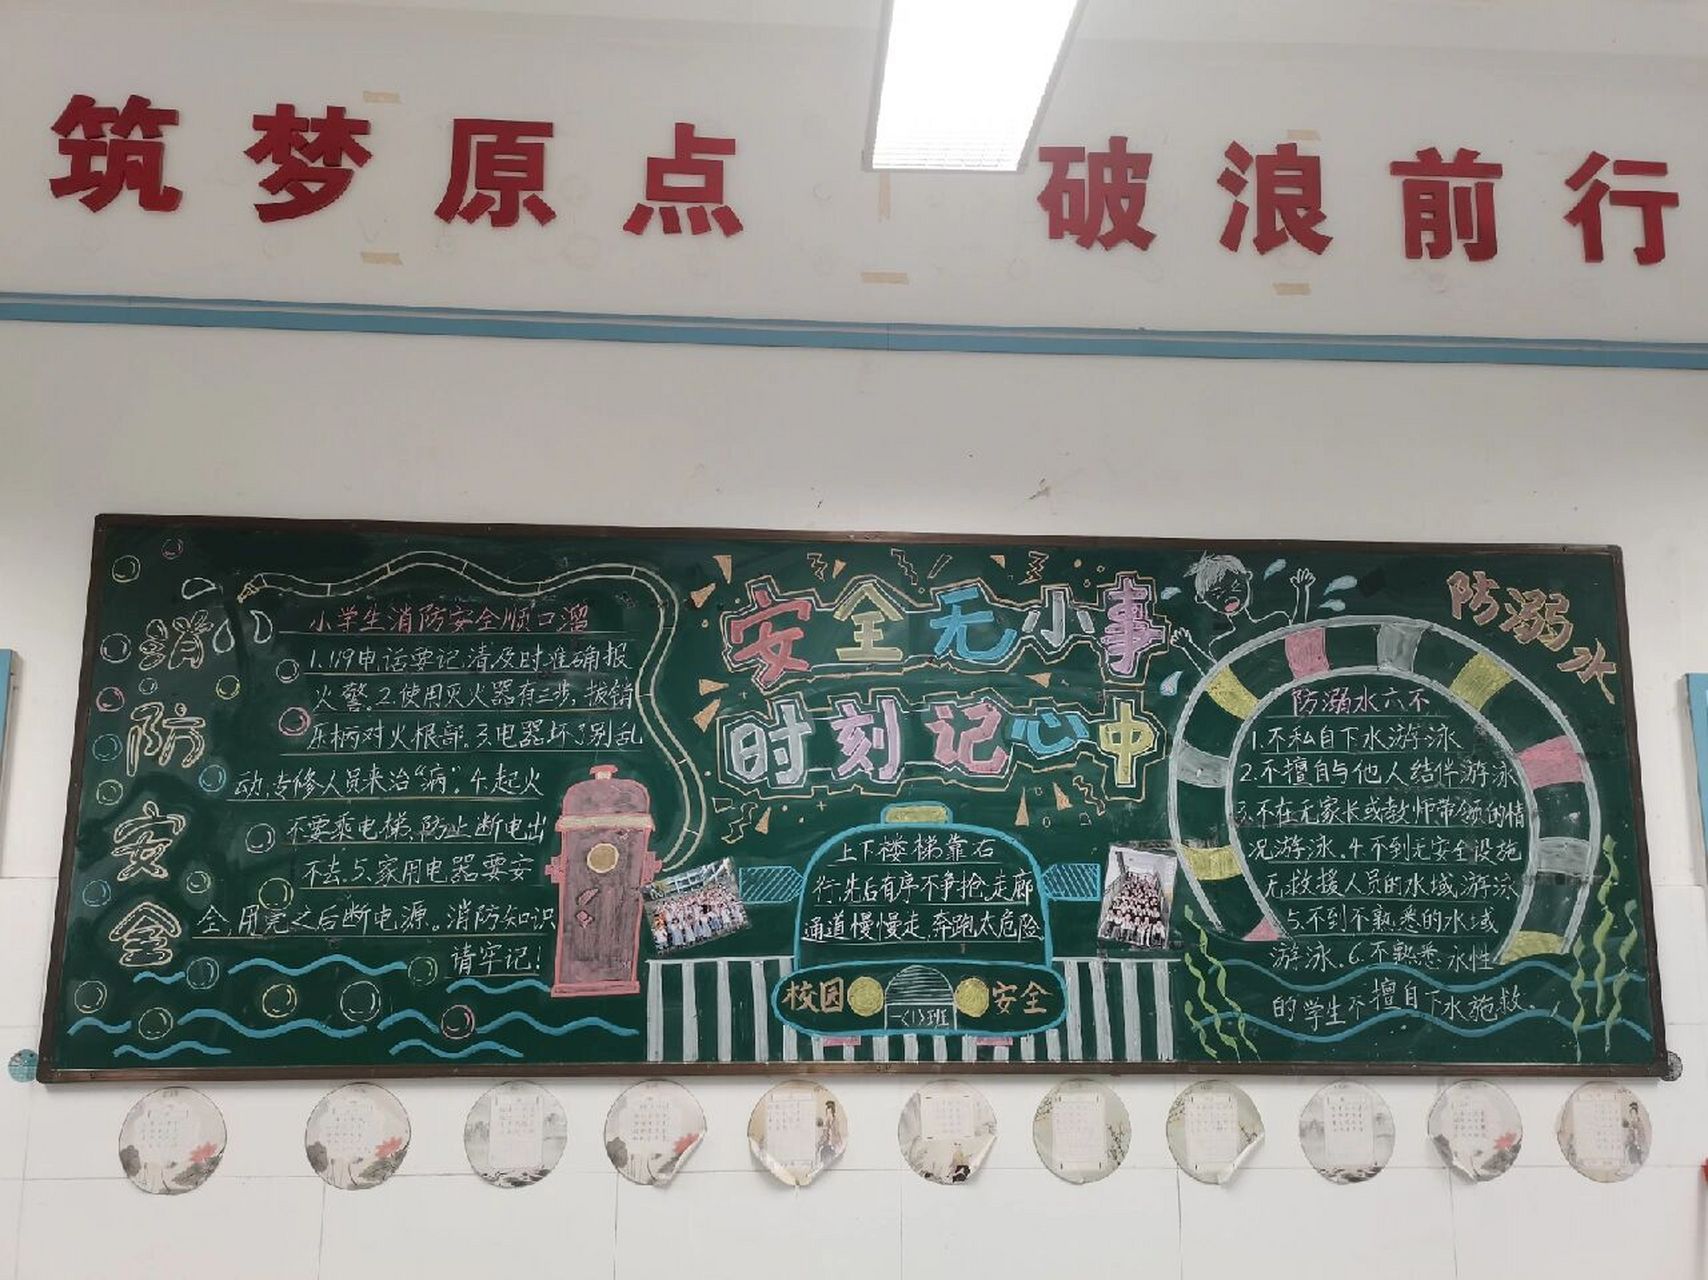 筑梦原点 破浪前行
消防安全
小学生消防安全顺口溜
1.119电话要记清,及时准确报
火警。2.使用灭火器有三步,拔销
压柄对火根部。3.电器坏了别乱
动,专修人员来治“病”。4.起火
不要乘电梯,防止断电出
不去。5.家用电器要安
全,用完之后断电源。消防知识
请牢记!
安全无小事
时刻记心中
上下楼梯靠右
行,先后有序不争抢,走廊
通道慢慢走,奔跑太危险
校园安全
一(1)班
防溺水
防溺水六不
1.不私自下水游泳
2.不擅自与他人结伴游泳
3.不在无家长或教师带领的情
况游泳.4.不到无安全设施
无救援人员的水域游泳
5.不到不熟悉的水域
游泳.6.不熟悉水性
的学生不擅自下水施救.